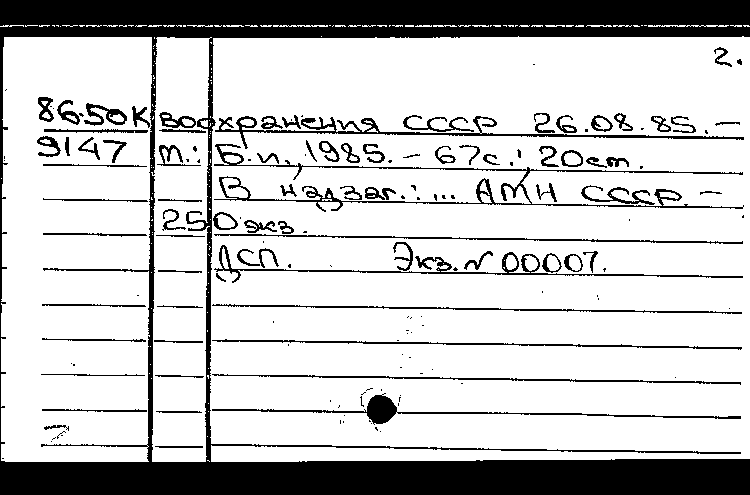 2.
86.50К воохранения СССР 26.08.85. —
9147 М.: Б.и., 1985. — 67 с.; 20 см.
В надзаг.: ... АМН СССР. —
250 экз.
ДСП. Экз. № 00007.